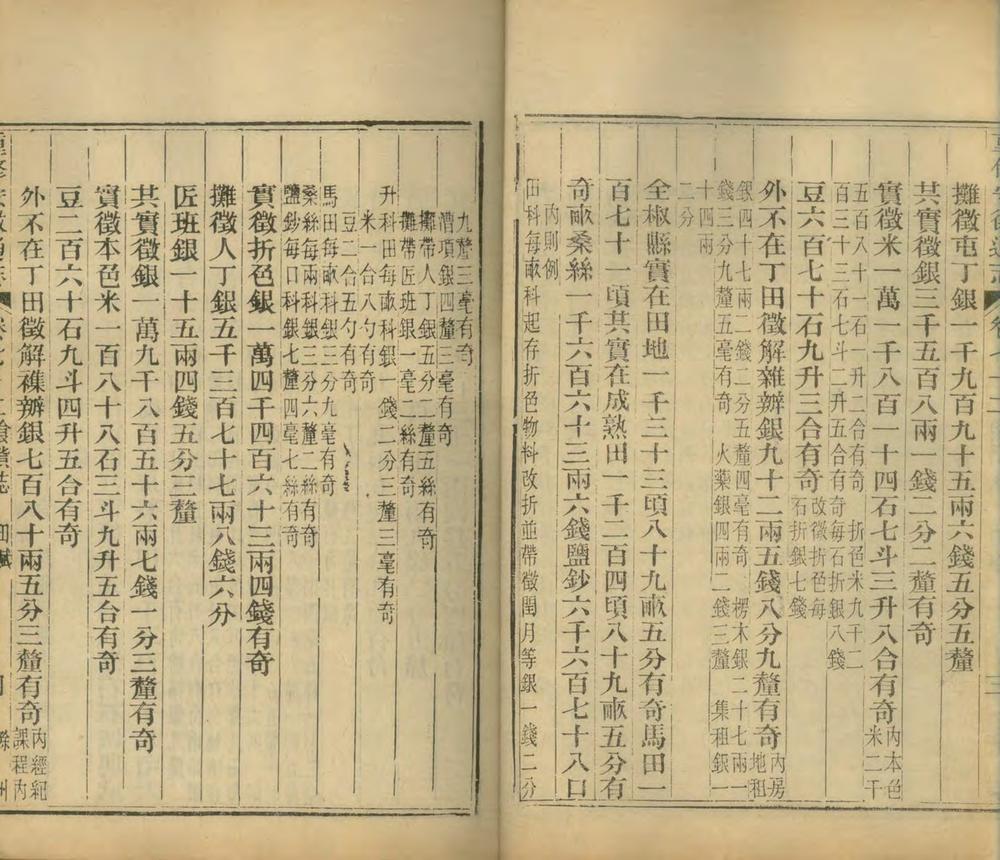 攤徵屯丁銀一千九百九十五兩六錢五分五釐
共實徵銀三千五百八兩一錢二分二釐有奇
實徵米一萬一千八百一十四石七斗三升八合有奇內本色米二千
五百八十一石一升二合有奇 折色米九千二
百三十三石七斗二升五合有奇每石折銀八錢
豆六百七十石九升三合有奇改徵折色每石折銀七錢
外不在丁田徵解雜辦銀九十二兩五錢八分九釐有奇內房地租
銀四十七兩二錢二分五釐四毫有奇 楞木銀二十七兩一
錢三分九釐五毫有奇 火藥銀四兩二錢三釐 集租銀一
十四兩
二分
全椒縣實在田地一千三十三頃八十九畝五分有奇馬田一
百七十一頃共實在成熟田一千二百四頃八十九畝五分有
奇畝桑絲一千六百六十三兩六錢鹽鈔六千六百七十八口
內則例
田科每畝科起存折色物料改折並帶徵閏月等銀一錢二分
九釐三毫有奇
漕項銀四釐三毫有奇
攤帶人丁銀五分二釐五絲有奇
攤帶匠班銀一毫二絲有奇
升科田每畝科銀一錢二分三釐三毫有奇
米一合八勺有奇
豆二合五勺有奇
馬田每畝科銀三分九毫有奇
桑絲每兩科銀三分六釐二絲有奇
鹽鈔每口科銀七釐四毫七絲有奇
實徵折色銀一萬四千四百六十三兩四錢有奇
攤徵人丁銀五千三百七十七兩八錢六分
匠班銀一十五兩四錢五分三釐
共實徵銀一萬九千八百五十六兩七錢一分三釐有奇
實徵本色米一百八十八石三斗九升五合有奇
豆二百六十石九斗四升五合有奇
外不在丁田徵解襍辦銀七百八十兩五分三釐有奇內經紀課程內